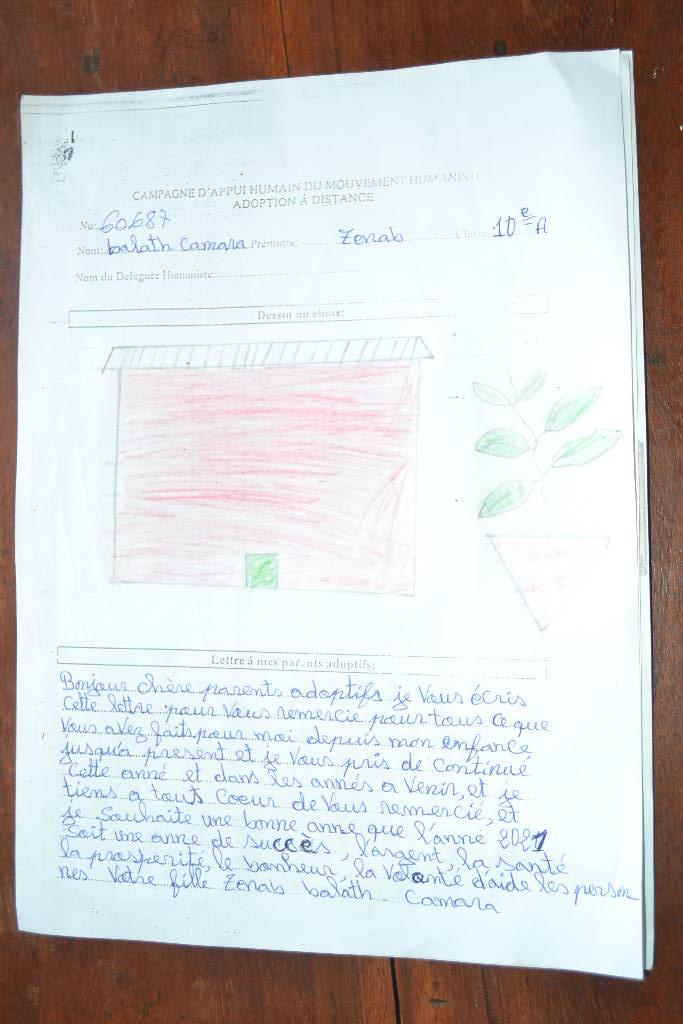 CAMPAGNE D'APPUI HUMAIN DU MOUVEMENT HUMANISTE
ADOPTION Á DISTANCE
No: 60687
Nom: balath Camara Prénoms: Zenab Classe: 10e A
Nom du Delegue Humaniste:
Dessin au choix:
Lettre á mes parents adoptifs:
Bonjour chère parents adoptifs je Vous écris
Cette lettre pour Vous remercie pour tous ce que
Vous avez faits pour moi depuis mon enfance
jusqu'a present et je Vous pris de continué
Cette anné et dans les annés a Venir, et je
tiens a tout coeur de Vous remercié, et
je Souhaite une bonne anne que l'anné 2021
Soit une anne de succès, l'argent, la santé
la prosperité, le bonheur, la Volonté d'aide les person
nes. Votre fille Zenab balath Camara